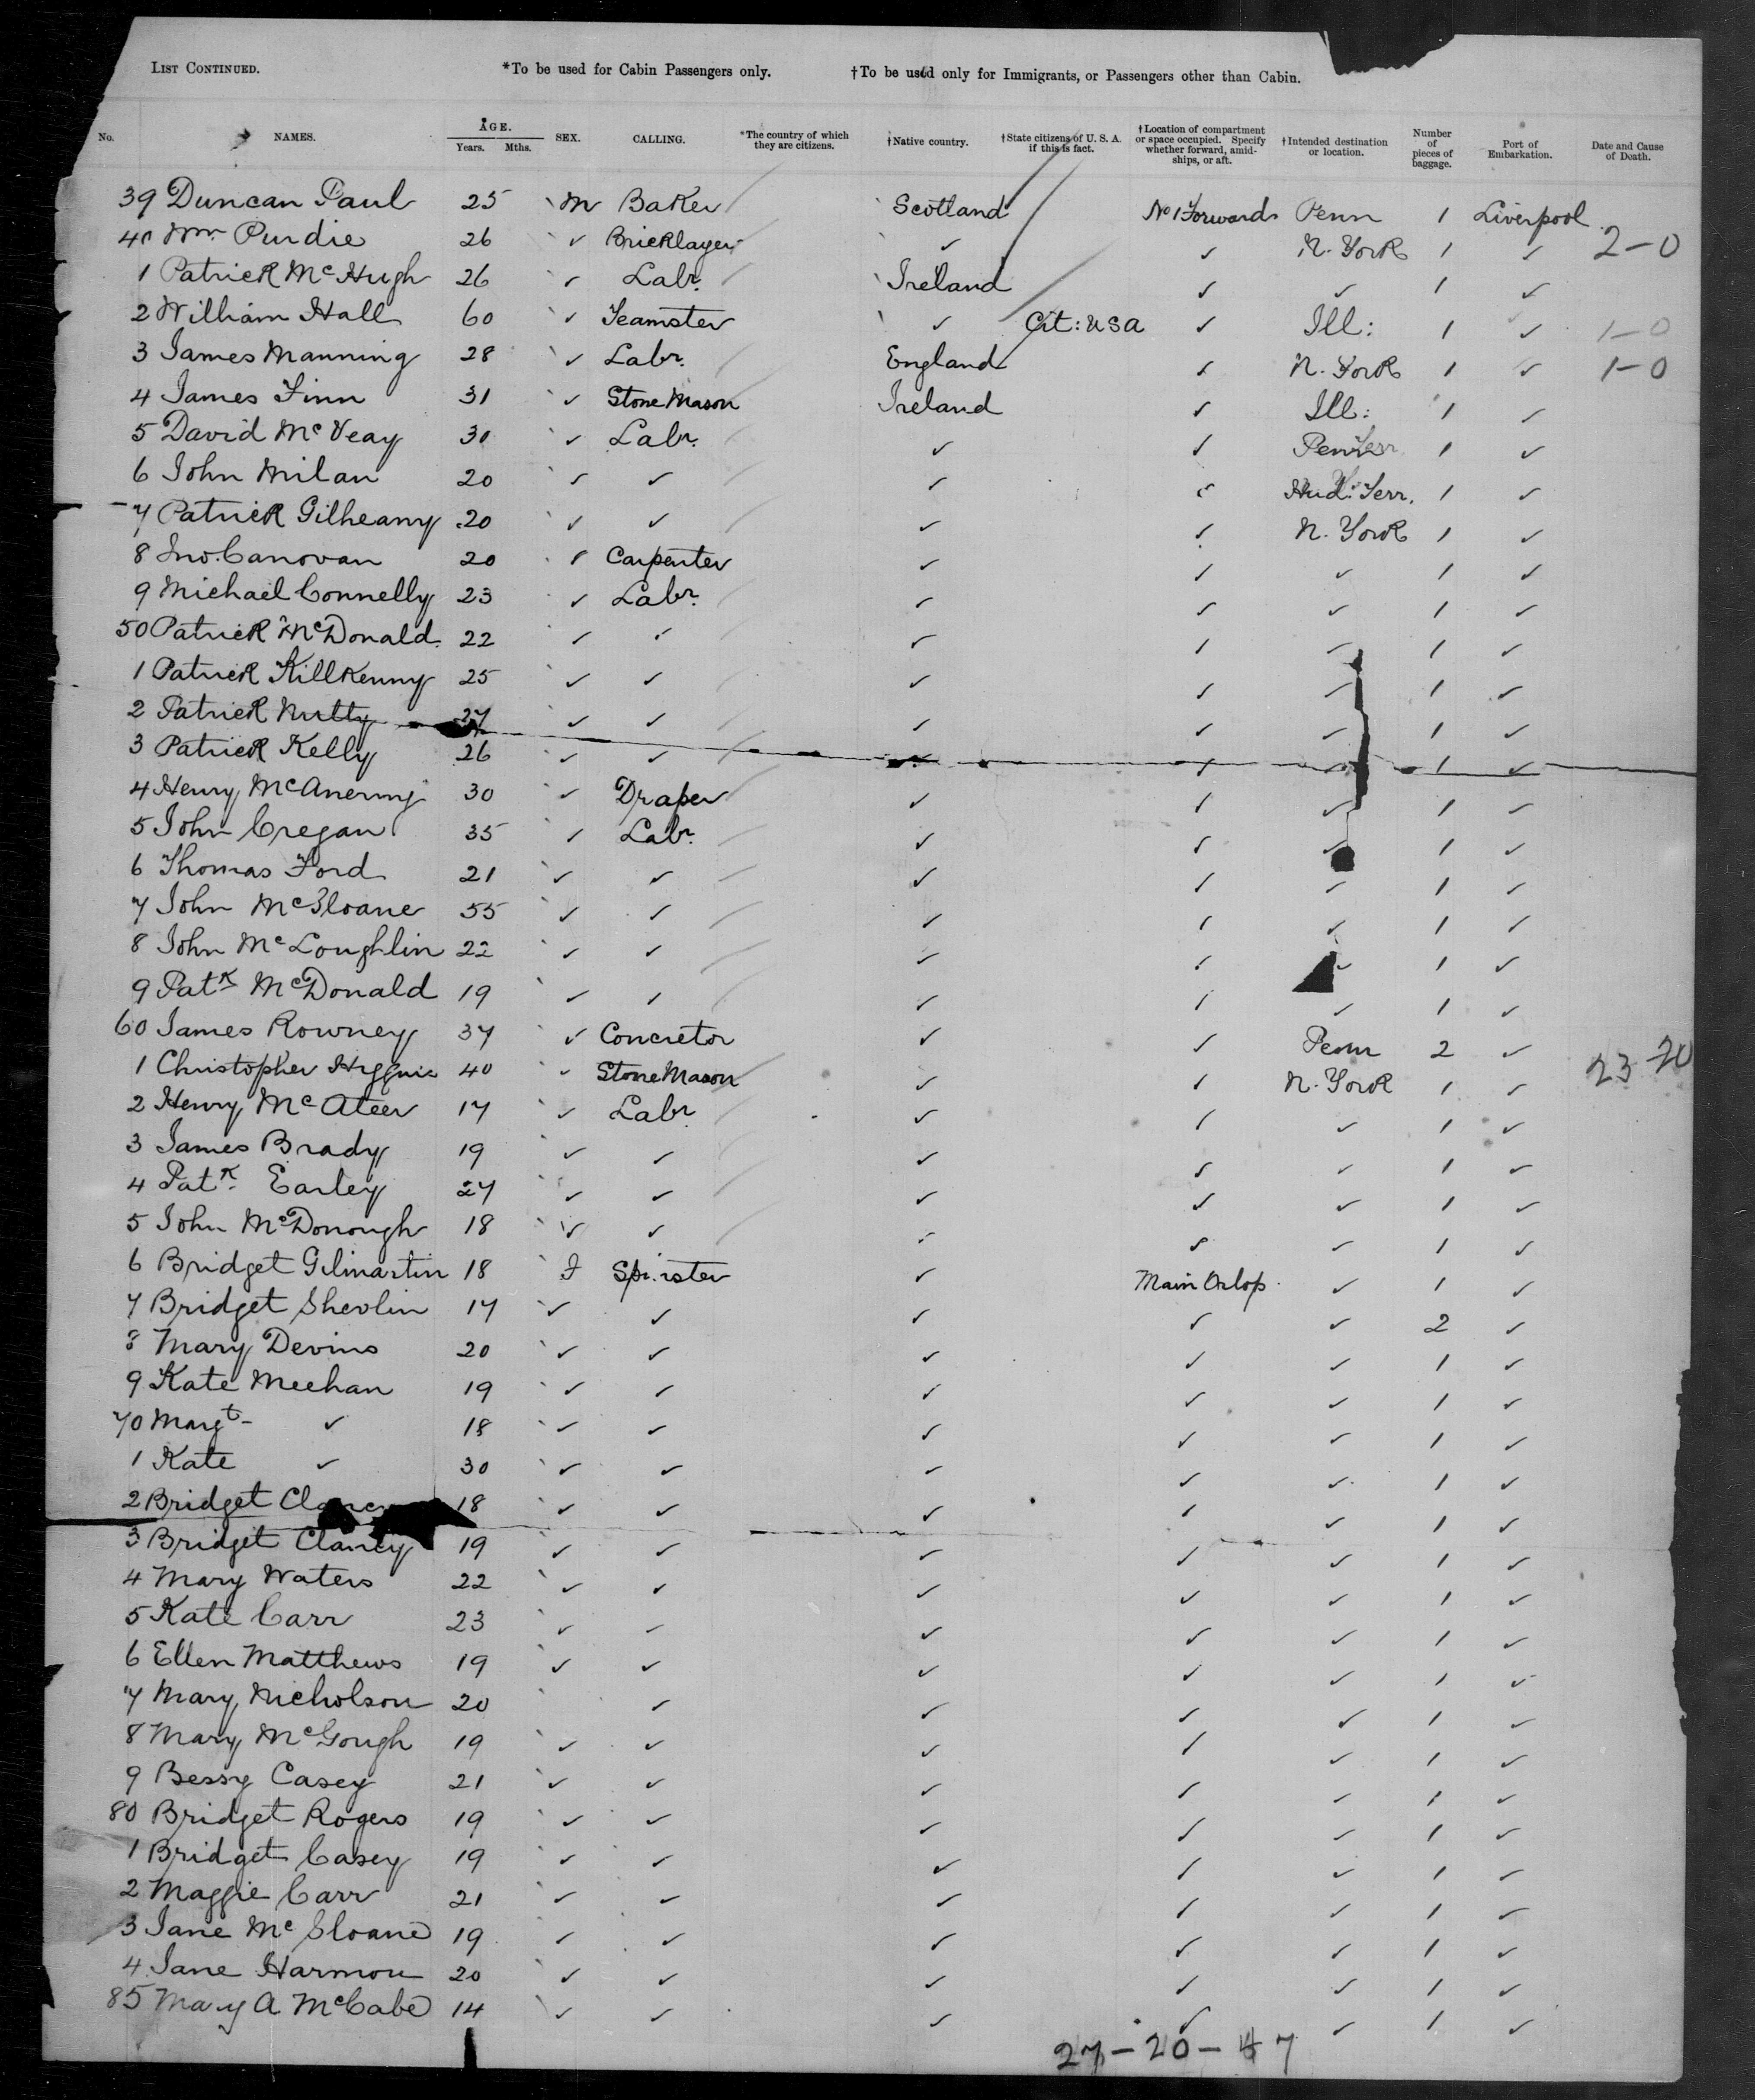 LIST CONTINUED. *To be used for Cabin Passengers only. †To be used only for Immigrants, or Passengers other than Cabin.
No. NAMES. AGE. Years. Mths. SEX. CALLING. *The country of which they are citizens. †Native country. †State citizens of U. S. A. if this is fact. †Location of compartment or space occupied. Specify whether forward, amidships, or aft. †Intended destination or location. Number of pieces of baggage. Port of Embarkation. Date and Cause of Death.
39 Duncan Paul 25 M Baker Scotland No 1 Forward Penn 1 Liverpool
40 Wm Purdie 26 ✓ Bricklayer ✓ ✓ N. York 1 ✓ 2-0
1 Patrick McHugh 26 ✓ Labr. Ireland ✓ ✓ 1 ✓
2 William Hall 60 ✓ Teamster ✓ Cit: USA ✓ Ill: 1 ✓ 1-0
3 James Manning 28 ✓ Labr. England ✓ N. York 1 ✓ 1-0
4 James Finn 31 ✓ Stone Mason Ireland ✓ Ill: 1 ✓
5 David McVeay 30 ✓ Labr. ✓ ✓ 1 ✓
6 John Milan 20 ✓ ✓ ✓ ✓ Terr. 1 ✓
7 Patrick Gilheany 20 ✓ ✓ ✓ ✓ N. York 1 ✓
8 Jno. Canovan 20 ✓ Carpenter ✓ ✓ ✓ 1 ✓
9 Michael Connelly 23 ✓ Labr. ✓ ✓ ✓ 1 ✓
50 Patrick McDonald 22 ✓ ✓ ✓ ✓ ✓ 1 ✓
1 Patrick Killkenny 25 ✓ ✓ ✓ ✓ ✓ 1 ✓
2 Patrick Nutty 27 ✓ ✓ ✓ ✓ ✓ 1 ✓
3 Patrick Kelly 26 ✓ ✓ ✓ ✓ ✓ 1 ✓
4 Henry McAnerny 30 ✓ Draper ✓ ✓ ✓ 1 ✓
5 John Cregan 35 ✓ Labr. ✓ ✓ ✓ 1 ✓
6 Thomas Ford 21 ✓ ✓ ✓ ✓ ✓ 1 ✓
7 John McSloane 55 ✓ ✓ ✓ ✓ ✓ 1 ✓
8 John McLoughlin 22 ✓ ✓ ✓ ✓ ✓ 1 ✓
9 Patk McDonald 19 ✓ ✓ ✓ ✓ ✓ 1 ✓
60 James Rowney 37 ✓ Concretor ✓ ✓ Penn 2 ✓
1 Christopher 40 ✓ Stone Mason ✓ ✓ N. York 1 ✓ 23-20
2 Henry McAteer 17 ✓ Labr ✓ ✓ ✓ 1 ✓
3 James Brady 19 ✓ ✓ ✓ ✓ ✓ 1 ✓
4 Patk Earley 27 ✓ ✓ ✓ ✓ ✓ 1 ✓
5 John McDonough 18 ✓ ✓ ✓ ✓ ✓ 1 ✓
6 Bridget Gilmartin 18 F Spinster ✓ Main Orlop ✓ 1 ✓
7 Bridget Shevlin 17 ✓ ✓ ✓ ✓ ✓ 2 ✓
8 Mary Devins 20 ✓ ✓ ✓ ✓ ✓ 1 ✓
9 Kate Meehan 19 ✓ ✓ ✓ ✓ ✓ 1 ✓
70 Margt ✓ 18 ✓ ✓ ✓ ✓ ✓ 1 ✓
1 Kate ✓ 30 ✓ ✓ ✓ ✓ ✓ 1 ✓
2 Bridget Clancy 18 ✓ ✓ ✓ ✓ ✓ 1 ✓
3 Bridget Clancy 19 ✓ ✓ ✓ ✓ ✓ 1 ✓
4 Mary Waters 22 ✓ ✓ ✓ ✓ ✓ 1 ✓
5 Kate Carr 23 ✓ ✓ ✓ ✓ ✓ 1 ✓
6 Ellen Matthews 19 ✓ ✓ ✓ ✓ ✓ 1 ✓
7 Mary Nicholson 20 ✓ ✓ ✓ ✓ 1 ✓
8 Mary McGough 19 ✓ ✓ ✓ ✓ ✓ 1 ✓
9 Bessy Casey 21 ✓ ✓ ✓ ✓ ✓ 1 ✓
80 Bridget Rogers 19 ✓ ✓ ✓ ✓ ✓ 1 ✓
1 Bridget Casey 19 ✓ ✓ ✓ ✓ ✓ 1 ✓
2 Maggie Carr 21 ✓ ✓ ✓ ✓ ✓ 1 ✓
3 Jane McSloane 19 ✓ ✓ ✓ ✓ ✓ 1 ✓
4 Jane Harmon 20 ✓ ✓ ✓ ✓ ✓ 1 ✓
85 Mary A McCabe 14 ✓ ✓ ✓ ✓ ✓ 1 ✓
27-20-47